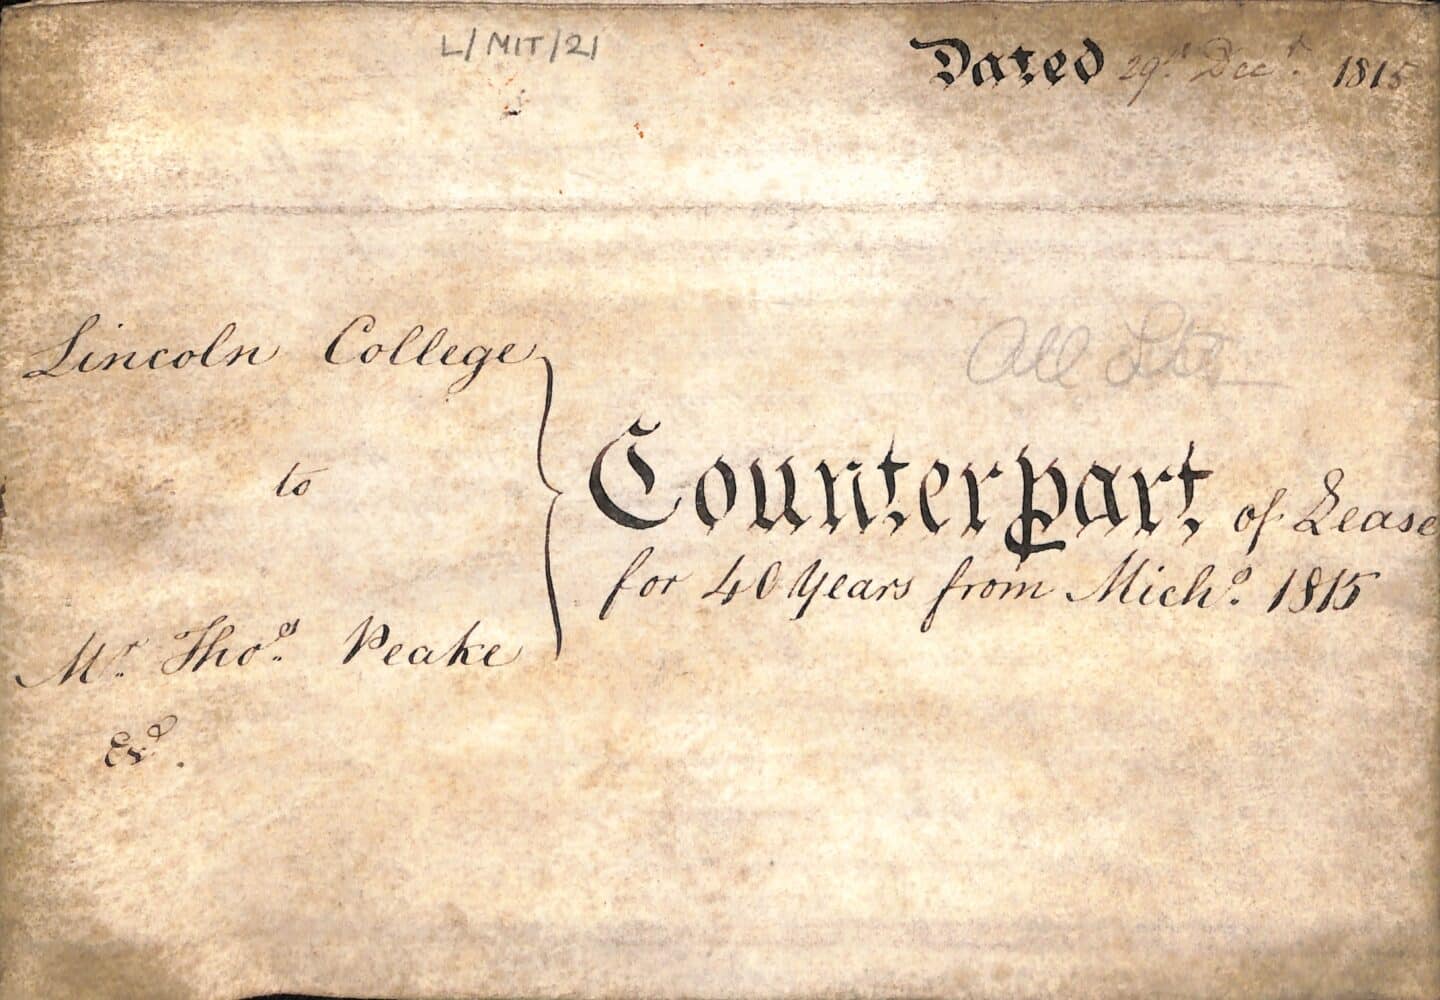 L/MIT/21
Dated 29th Decr. 1815
Lincoln College
to
Mr. Thos. Peake
Exd.
All
Counterpart of Lease
for 40 Years from Michs. 1815